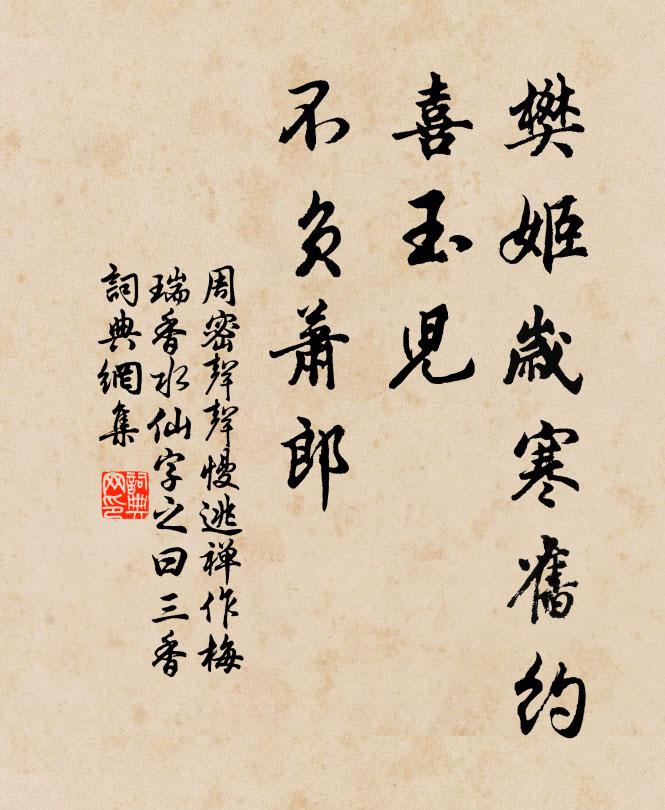 樊姬歲寒舊約
喜玉兒
不負蕭郎
周密聲聲慢逃禅作梅
瑞香水仙字之曰三香
詞典網集
詞典
网印